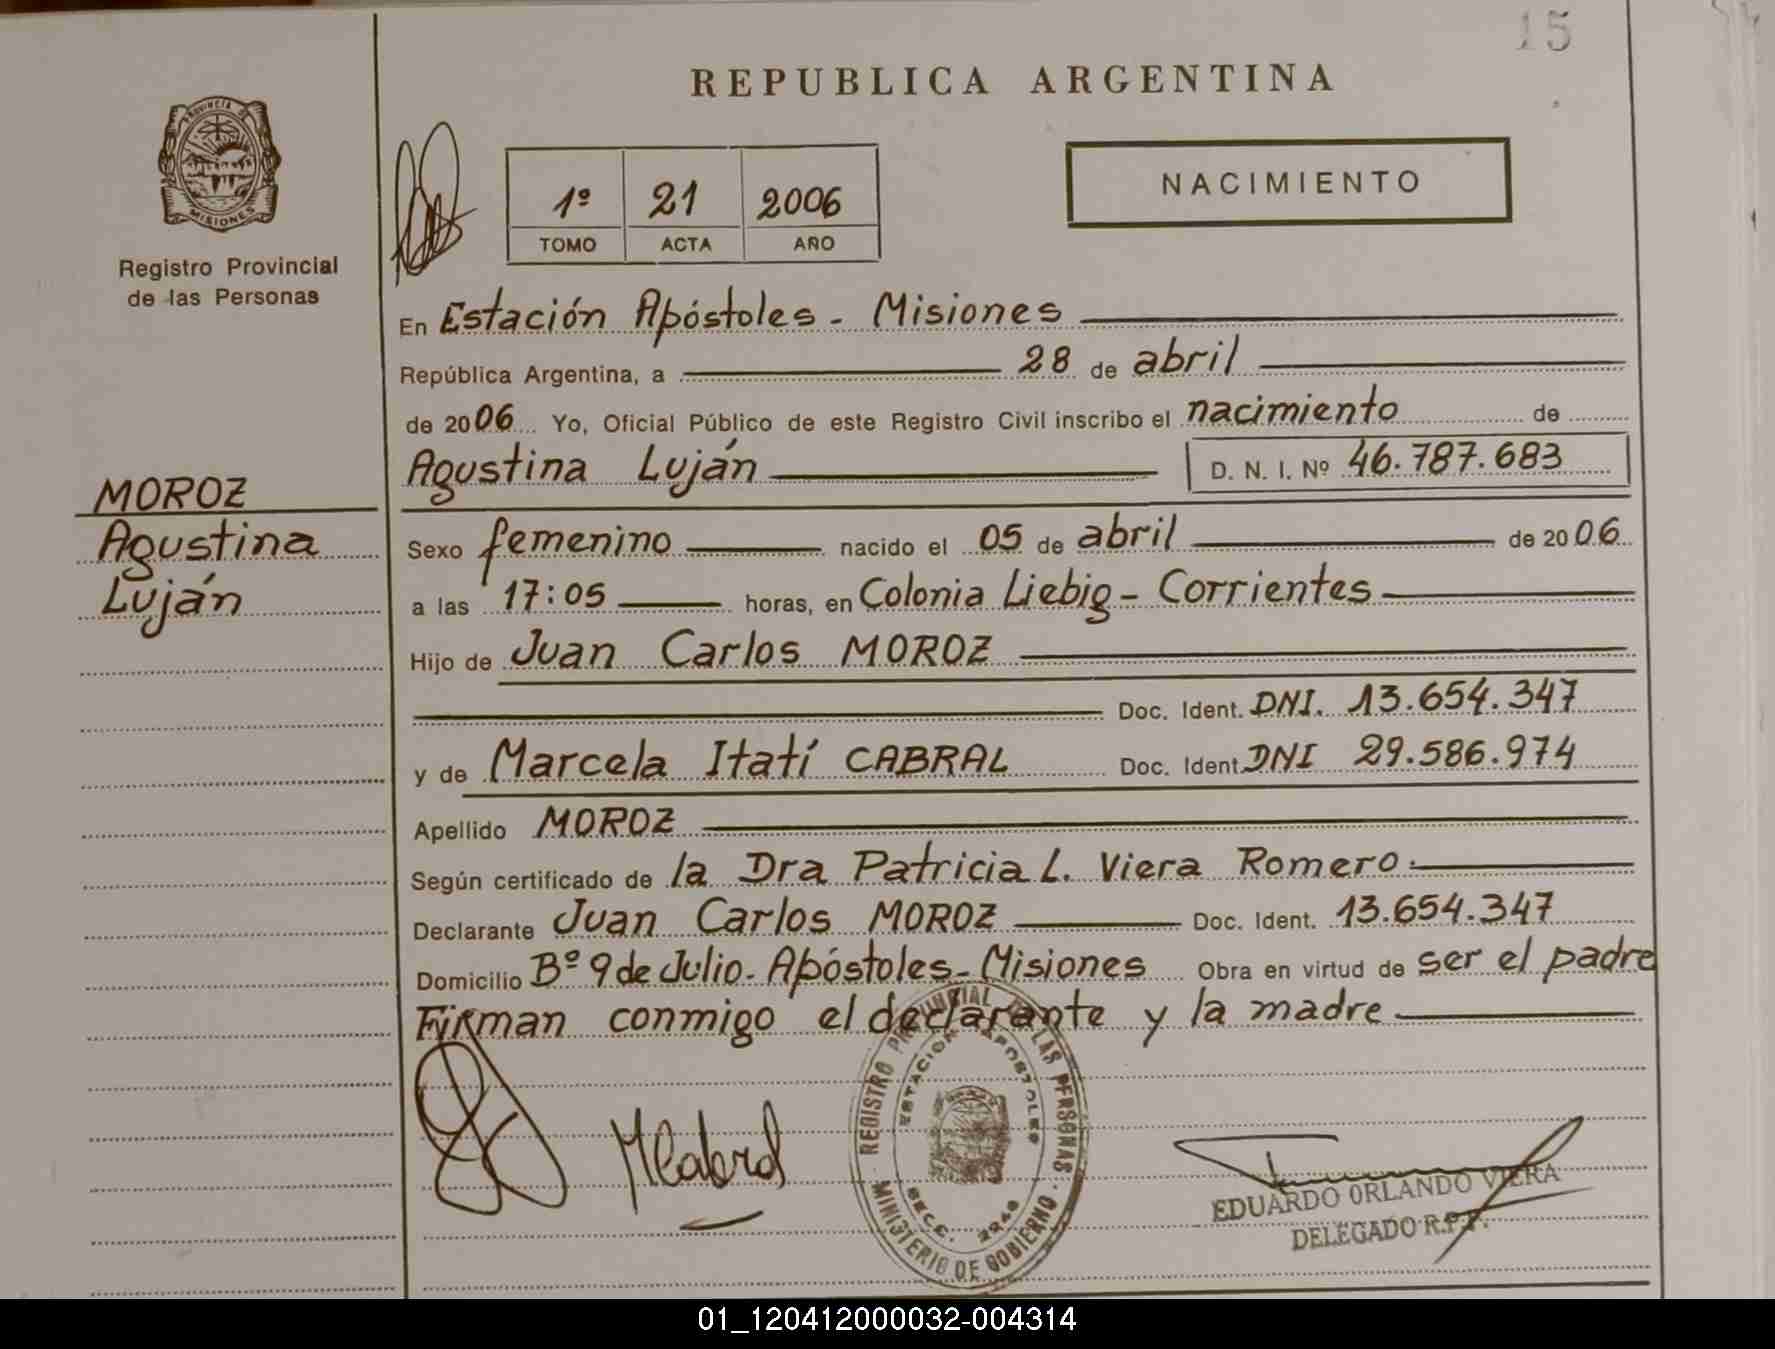 15
REPUBLICA ARGENTINA
PROVINCIA DE
MISIONES
Registro Provincial
de las Personas
1º 21 2006
TOMO ACTA AÑO
NACIMIENTO
En Estación Apóstoles - Misiones
República Argentina, a 28 de abril
de 2006 Yo, Oficial Público de este Registro Civil inscribo el nacimiento de
Agustina Luján D. N. I. Nº 46.787.683
MOROZ
Agustina
Luján
Sexo femenino nacido el 05 de abril de 2006
a las 17:05 horas, en Colonia Liebig - Corrientes
Hijo de Juan Carlos MOROZ
Doc. Ident. DNI. 13.654.347
y de Marcela Itatí CABRAL Doc. Ident. DNI 29.586.974
Apellido MOROZ
Según certificado de la Dra Patricia L. Viera Romero.
Declarante Juan Carlos MOROZ Doc. Ident. 13.654.347
Domicilio Bº 9 de Julio. Apóstoles - Misiones Obra en virtud de ser el padre
Firman conmigo el declarante y la madre
MCabral
REGISTRO PROVINCIAL DE LAS PERSONAS
ESTACION APOSTOLES
MINISTERIO DE GOBIERNO
EDUARDO ORLANDO VIERA
DELEGADO R.P.P.
01_120412000032-004314